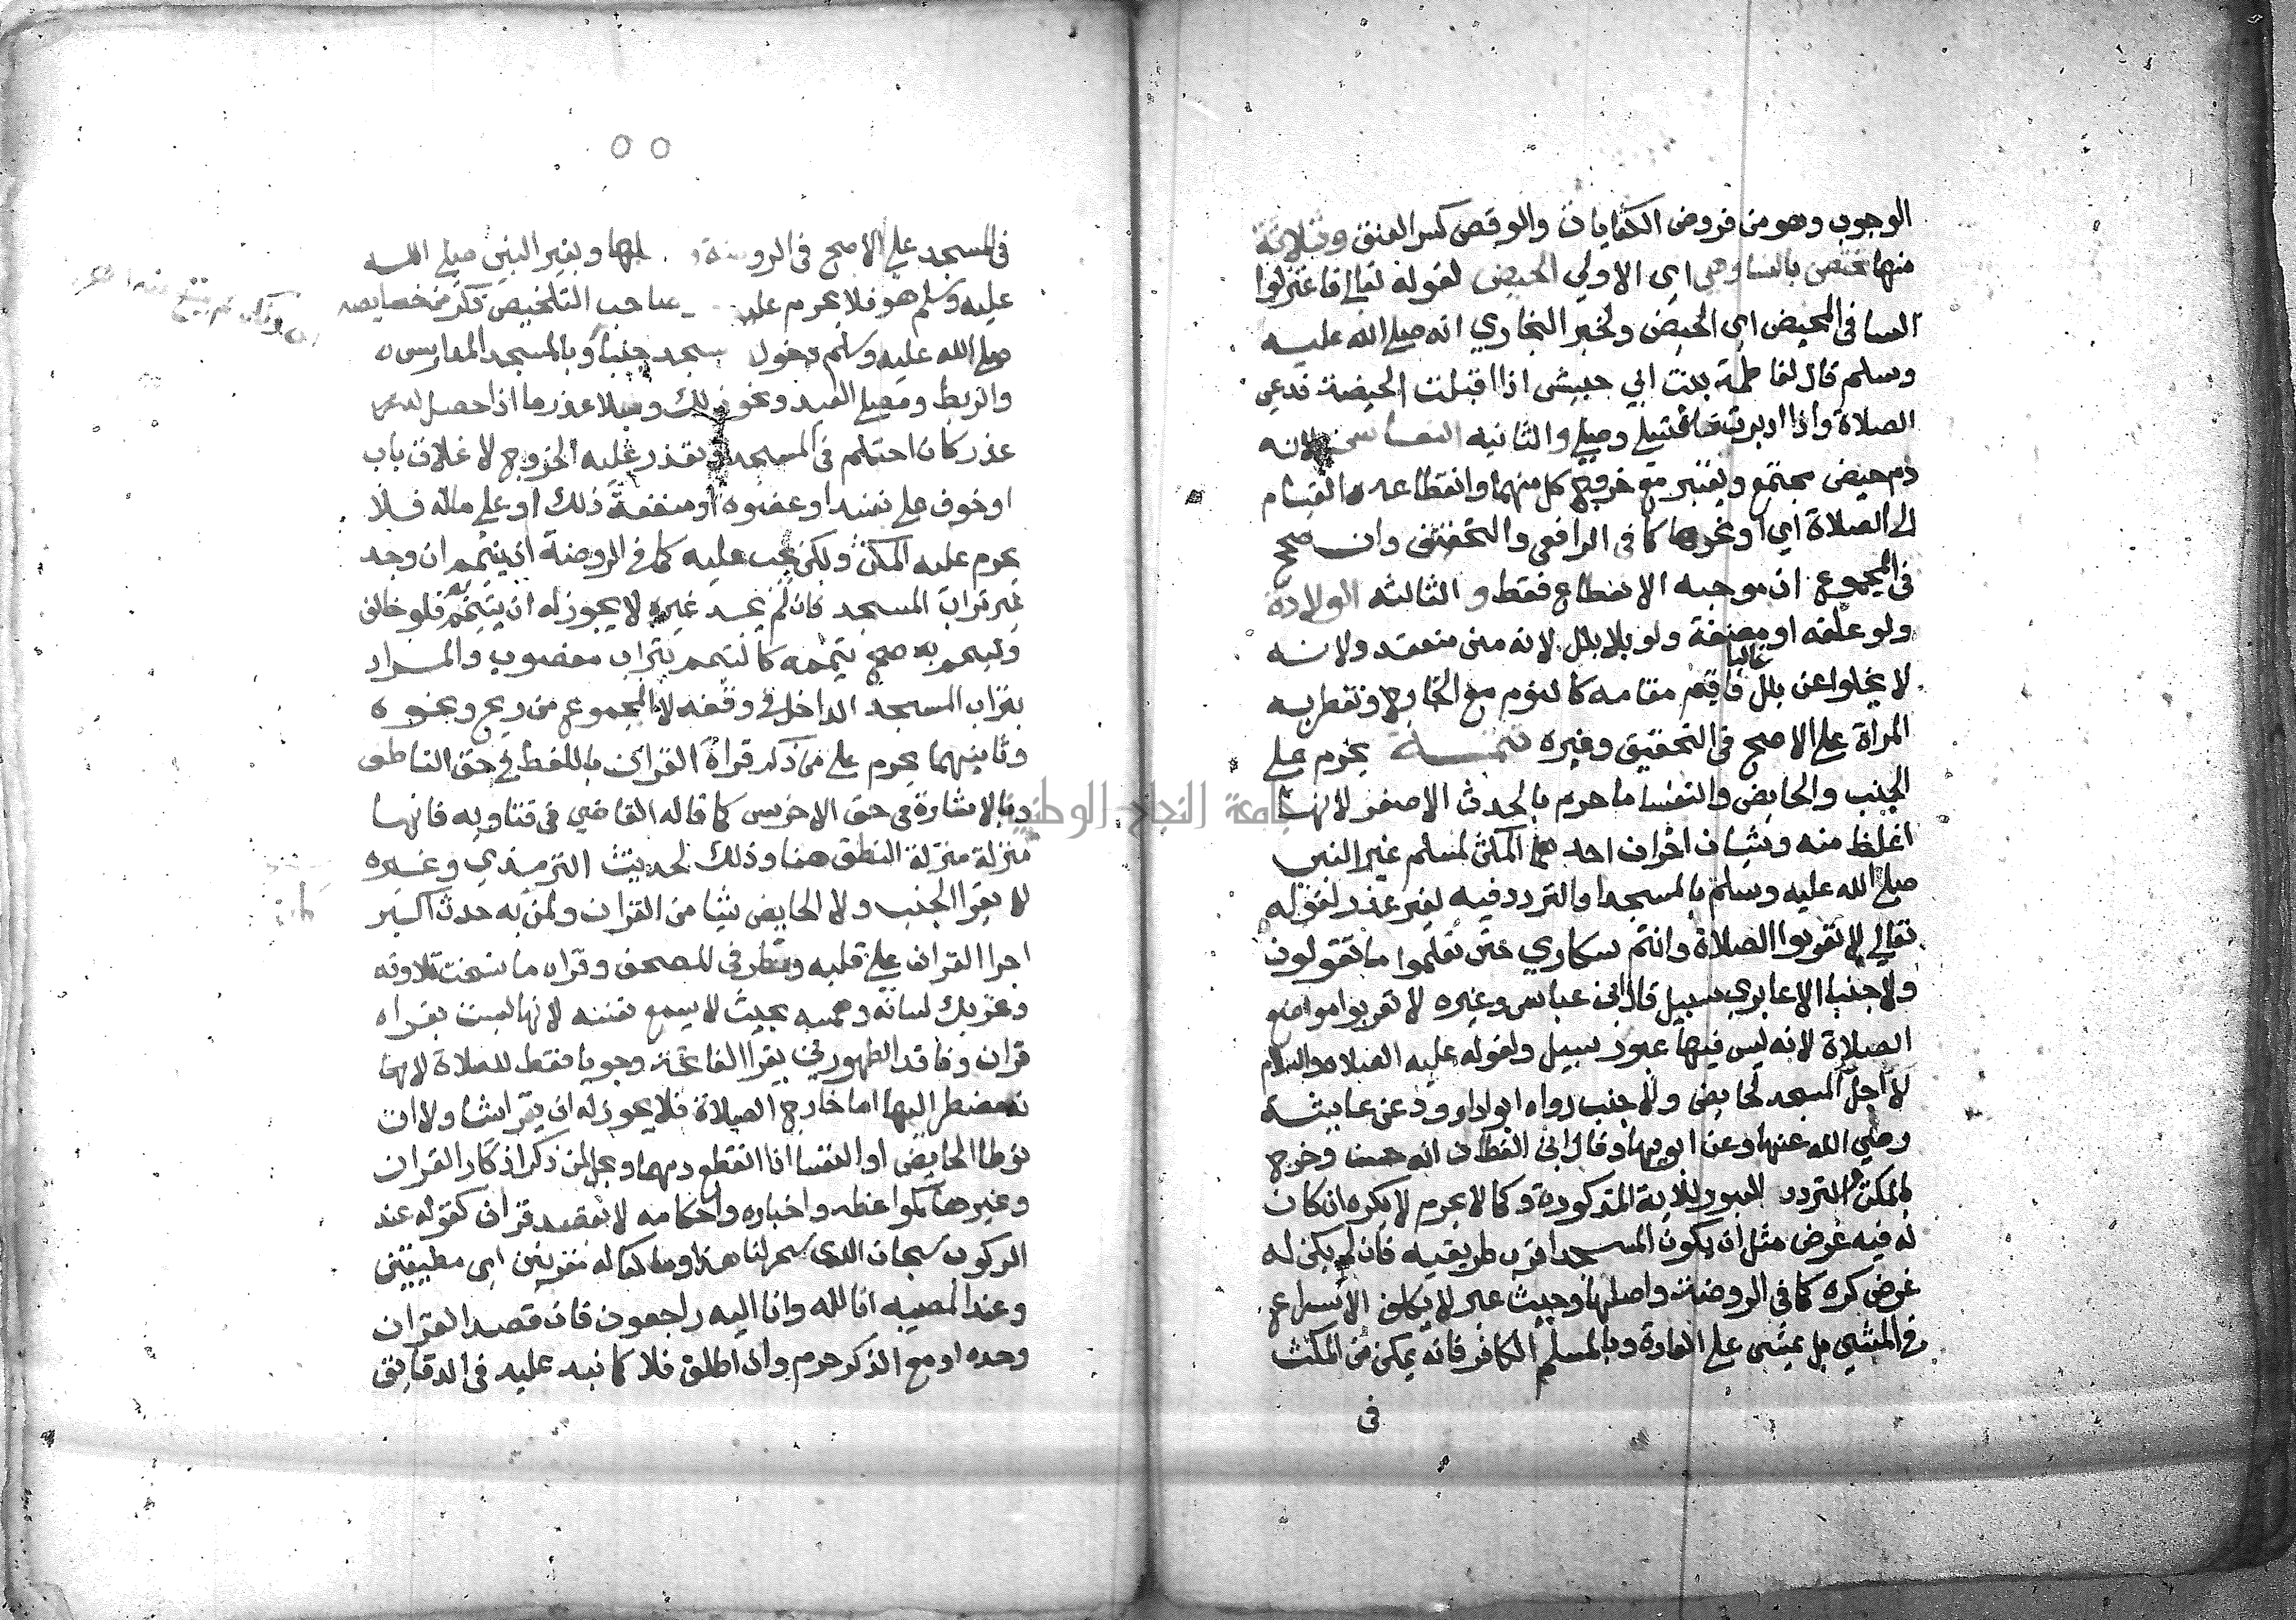 الوجوب وهو من فروض الكفايات والوقص كسر العنق وثلاثة
منها تختص بالنسا وهي اي الاولي الحيض لقوله تعالي فاعتزلوا
النسا في المحيض اي الحيض ولخبر البخاري انه صلي الله عليه
وسلم قال لفاطمة بنت ابي حبيش اذا اقبلت الحيضة فدعي
الصلاة واذا ادبرت فاغتسلي وصلي والثانيه النفاس لانه
دم حيض مجتمع ويعتبر مع خروج كل منهما وانقطاعه القيام
الي الصلاة اي او نحوها كما في الرافعي والتحقيق وان صحح
في المجموع ان موجبه الانقطاع فقط والثالثه الولادة
ولو علقه او مضغة ولو بلا بلل لانه مني منعقد ولانه
لا يخلوا عن بلل غالبا فاقيم مقامه كالنوم مع الخارج وتفطر به
المراة علي الاصح في التحقيق وغيره تتمـــة يحرم علي
الجنب والحايض والنفسا ما حرم بالحدث الاصغر لانها
اغلظ منه وشيان اخران احدهما المكث لمسلم غير النبي
صلي الله عليه وسلم بالمسجد او التردد فيه لغير عذر لقوله
تعالي لا تقربوا الصلاة وانتم سكاري حتي تعلموا ما تقولون
ولا جنبا الا عابري سبيل قال ابن عباس وغيره لا تقربوا مواضع
الصلاة لانه ليس فيها عبور سبيل ولقوله عليه الصلاة والسلام
لا احل المسجد لحايض ولا جنب رواه ابو داوود عن عايشة
رضي الله عنها وعن ابويها وقال ابن القطان انه حسن وخرج
بالمكث والتردد العبور للاية المذكورة وكما لا يحرم لا يكره ان كان
له فيه غرض مثل ان يكون المسجد اقرب طريقيه فان لم يكن له
غرض كره كما في الروضة واصلها وحيث عبر لا يكلف الاسراع
في المشي بل يمشي علي العادة وبالمسلم الكافر فانه يمكن من المكث
في
٥٥
في المسجد علي الاصح في الروضة و لها وبغير النبي صلي الله
عليه وسلم هو فلا يحرم عليه صاحب التلخيص ذكر من خصايصه
صلي الله عليه وسلم دخول المسجد جنبا وبالمسجد المدارس
والربط ومصلي العيد ونحو ذلك وبلا عذر ما اذا حصل له
عذر كان احتلم في المسجد وتعذر عليه الخروج لاغلاق باب
او خوف علي نفسه او عضوه او منفعة ذلك او علي ماله فلا
يحرم عليه المكث ولكن يجب عليه كما في الروضة ان يتيمم ان وجد
غير تراب المسجد فان لم يجد غيره لا يجوز له ان يتيمم به فلو خالف
وتيمم به صح تيممه كالتيمم بتراب مغصوب والمراد
بتراب المسجد الداخل في وقفه لا المجموع من ريح ونحوه
وثانيهما يحرم علي من ذكر قراة القران باللفظ في حق الناطق
وبالاشارة في حق الاخرس كما قاله القاضي في فتاويه فانها
منزلة منزلة النطق هنا وذلك لحديث الترمذي وغيره
لا يقرا الجنب ولا الحايض شيا من القران ولمن به حدث اكبر
اجرا القران علي قلبه ونظر في المصحف وقراه ما نسخت تلاوته
وتحريك لسانه وهمسه بحيث لا يسمع نفسه لانها ليست بقراه
قران وفاقد الطهورين يقرا الفاتحة وجوبا فقط للصلاة لانه
مضطر اليها اما خارج الصلاة فلا يجوز له ان يقرا شيا ولا ان
توطا الحايض او النفسا اذا انقطع دمهما ويحل لمن ذكر اذكار القران
وغيرها كمواعظه واخباره واحكامه لا بقصد قران كقوله عند
الركوب سبحان الذي سخر لنا هذا وما كنا له مقرنين اي مطيقين
وعند المصيبه انا لله وانا اليه راجعون فان قصد القران
وحده او مع الذكر حرم وان اطلق فلا كما نبه عليه في الدقايق
جامعة النجاح الوطنية